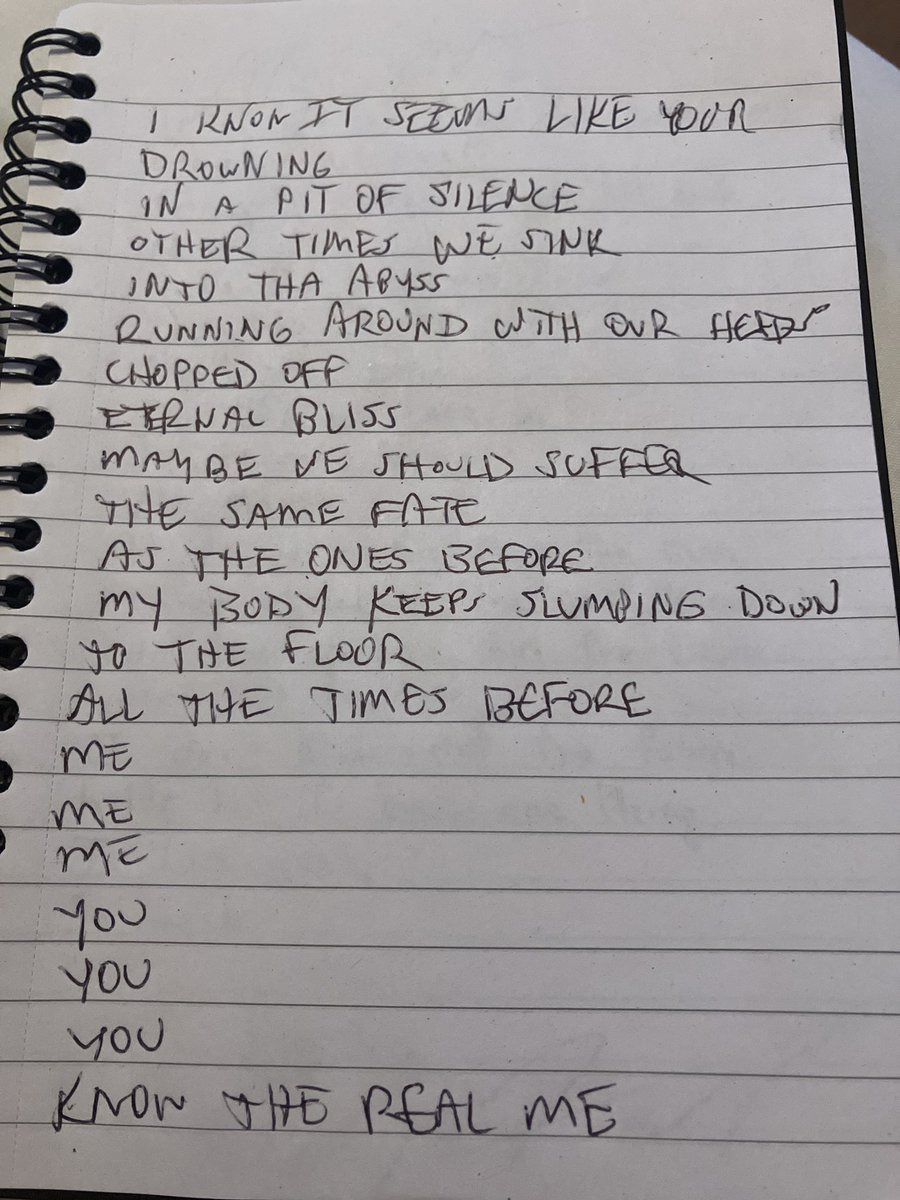 I KNOW IT SEEMS LIKE YOUR
DROWNING
IN A PIT OF SILENCE
OTHER TIMES WE SINK
INTO THA ABYSS
RUNNING AROUND WITH OUR HEEDS
CHOPPED OFF
ETERNAL BLISS
MAYBE WE SHOULD SUFFER
THE SAME FATE
AS THE ONES BEFORE
MY BODY KEEPS SLUMPING DOWN
TO THE FLOOR
ALL THE TIMES BEFORE
ME
ME
ME
YOU
YOU
YOU
KNOW THE REAL ME